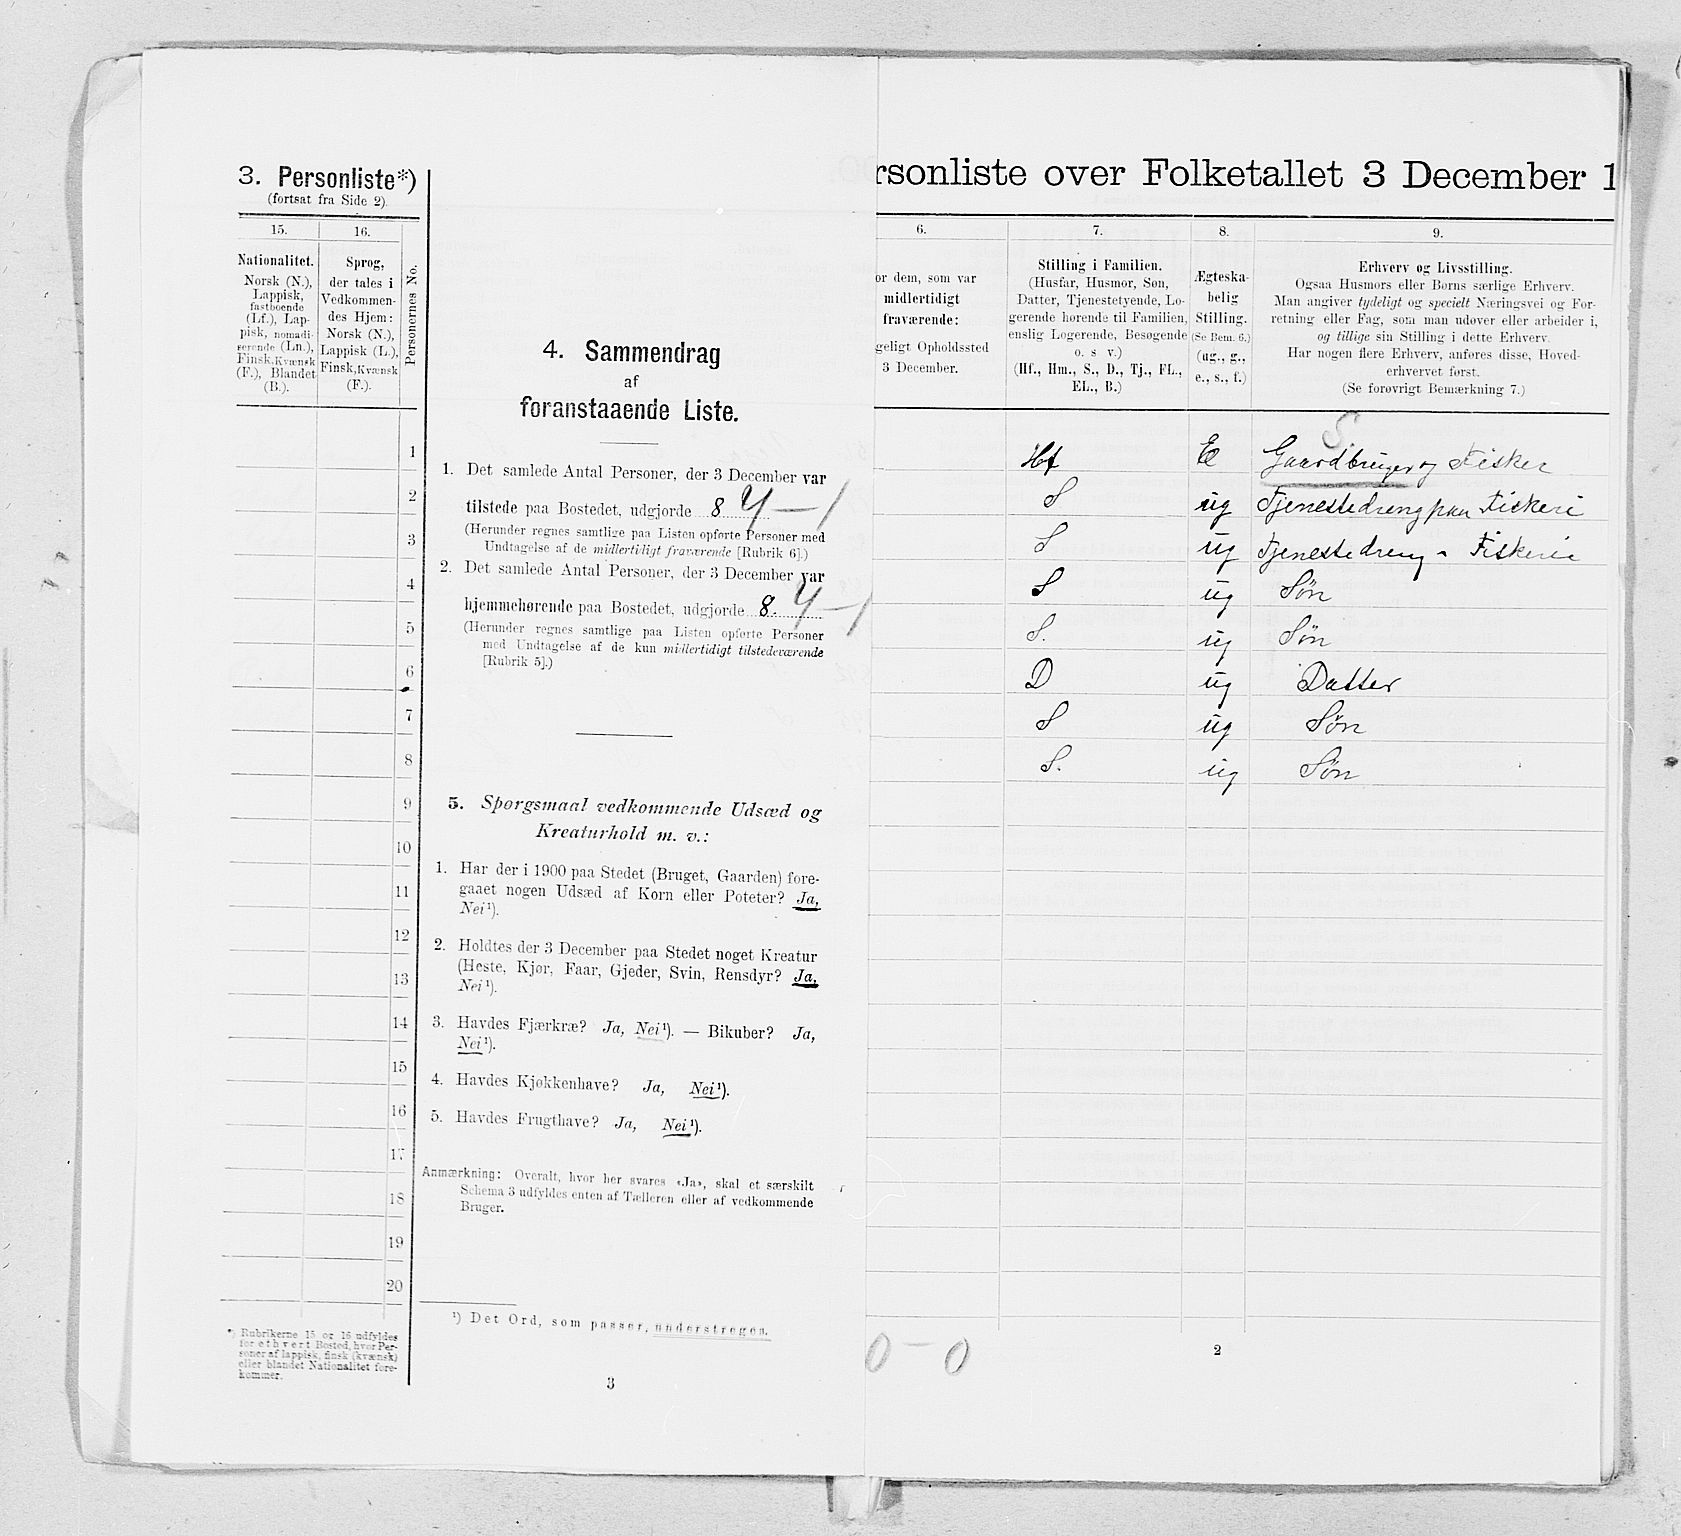 3. Personliste*)
(fortsat fra Side 2).
15.
16.
Nationalitet.
Norsk (N.),
Lappisk,
fastboende
(Lf.), Lap-
pisk, nomadi-
serende (Ln.),
Finsk, Kvænsk
(F.), Blandet
(B.).
Sprog,
der tales i
Vedkommen-
des Hjem:
Norsk (N.),
Lappisk (L.),
Finsk, Kvænsk
(F.).
Personernes No.
1
2
3
4
5
6
7
8
9
10
11
12
13
14
15
16
17
18
19
20
*) Rubrikerne 15 og 16 udfyldes
for ethvert Bosted, hvor Per-
soner af lappisk, finsk (kvænsk)
eller blandet Nationalitet fore-
kommer.
4. Sammendrag
af
foranstaaende Liste.
1. Det samlede Antal Personer, der 3 December var
tilstede paa Bostedet, udgjorde 8
(Herunder regnes samtlige paa Listen opførte Personer med
Undtagelse af de midlertidigt fraværende [Rubrik 6].)
2. Det samlede Antal Personer, der 3 December var
hjemmehørende paa Bostedet, udgjorde 8.
(Herunder regnes samtlige paa Listen opførte Personer
med Undtagelse af de kun midlertidigt tilstedeværende
[Rubrik 5].)
5. Spørgsmaal vedkommende Udsæd og
Kreaturhold m. v.:
1. Har der i 1900 paa Stedet (Bruget, Gaarden) fore-
gaaet nogen Udsæd af Korn eller Poteter? Ja,
Nei¹).
2. Holdtes der 3 December paa Stedet noget Kreatur
(Heste, Kjør, Faar, Gjeder, Svin, Rensdyr? Ja,
Nei¹).
3. Havdes Fjærkræ? Ja, Nei¹). — Bikuber? Ja,
Nei¹).
4. Havdes Kjøkkenhave? Ja, Nei¹).
5. Havdes Frugthave? Ja, Nei¹).
Anmærkning: Overalt, hvor her svares «Ja», skal et særskilt
Schema 3 udfyldes enten af Tælleren eller af vedkommende
Bruger.
¹) Det Ord, som passer, understreges.
3
rsonliste over Folketallet 3 December 1
6.
7.
8.
9.
or dem, som var
midlertidigt
fraværende:
geligt Opholdssted
3 December.
Stilling i Familien.
(Husfar, Husmor, Søn,
Datter, Tjenestetyende, Lo-
gerende hørende til Familien,
enslig Logerende, Besøgende
o. s v.)
(Hf., Hm., S., D., Tj., FL.,
EL., B.)
Ægteska-
belig
Stilling.
(Se Bem. 6.)
(ug., g.,
e., s., f.)
Erhverv og Livsstilling.
Ogsaa Husmors eller Børns særlige Erhverv.
Man angiver tydeligt og specielt Næringsvei og For-
retning eller Fag, som man udøver eller arbeider i,
og tillige sin Stilling i dette Erhverv.
Har nogen flere Erhverv, anføres disse, Hoved-
erhvervet først.
(Se forøvrigt Bemærkning 7.)
S
Hf E Gaardbruger og Fisker
S ug Tjenestedreng paa Fiskeri
S ug Tjenestedreng - Fiskerie
S ug Søn
S. ug Søn
D ug Datter
S ug Søn
S. ug Søn
0 — 0
2